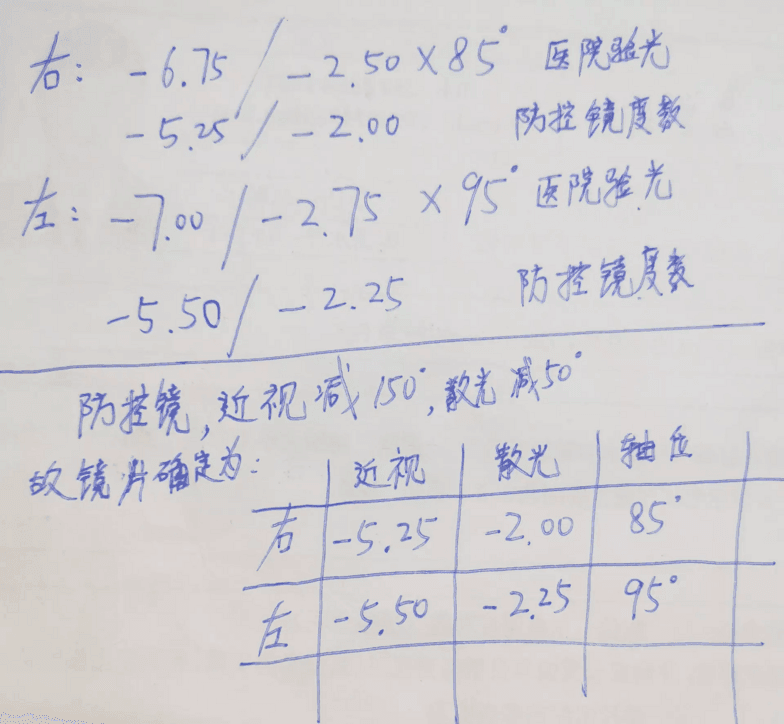 右: -6.75 / -2.50×85° 医院验光
-5.25 / -2.00 防控镜度数
左: -7.00 / -2.75 ×95° 医院验光
-5.50 / -2.25 防控镜度数
防控镜,近视减150°,散光减50°
故镜片确定为:
近视 散光 轴位
右 -5.25 -2.00 85°
左 -5.50 -2.25 95°